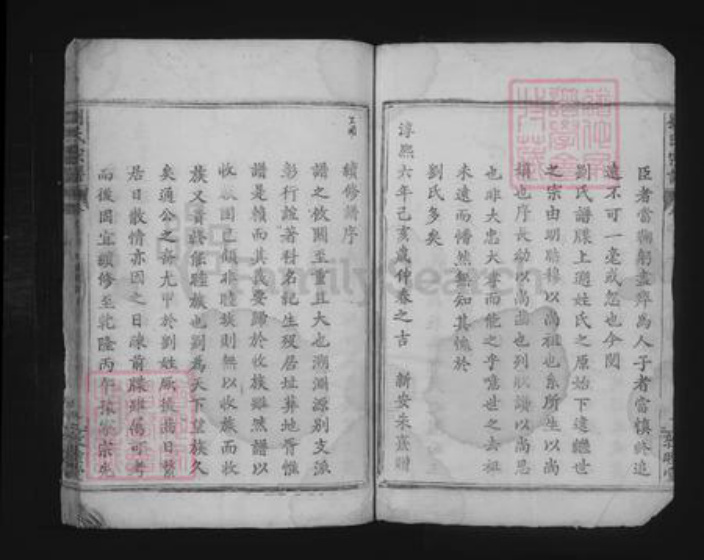 臣者當鞠躬盡瘁為人子者當慎終追
遠不可一毫或忽也今閱
劉氏譜牒上遡姓氏之原始下逮繼世
之宗由明昭穆以尚祖也系所生以尚
也序長幼以尚齒也列狀讚以尚思
也非大忠大孝而能之乎噫世之去祖
未遠而懵然無知其愧於
劉氏多矣
淳熙六年己亥歲仲春之吉 新安朱熹
續修譜序
譜之攸關至重且大也溯淵源別支派
彰行誼著科名紀生歿居址葬地胥惟
譜是賴而其義要歸於收族雖然譜以
收族固已顧非睦族則無以收族而收
族又貴於能睦族也劉為天下望族久
矣通公之裔尤甲於劉姓厥後齒日繁
居日散情亦因之日疎前牒雖可考
而後圖宜續修至乾隆丙午家宗
FamilySearch